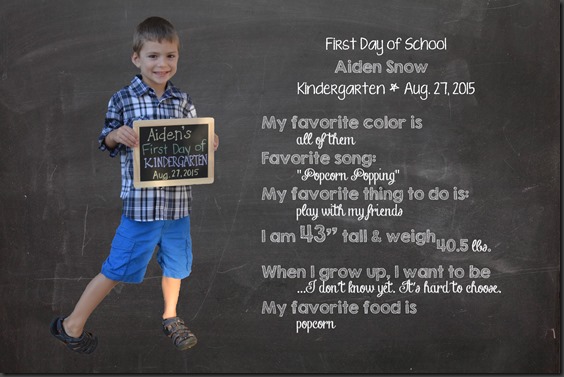 Aiden's
First Day of
KINDERGARTEN
Aug. 27, 2015
First Day of School
Aiden Snow
Kindergarten * Aug. 27, 2015
My favorite color is
all of them
Favorite song:
"Popcorn Popping"
My favorite thing to do is:
play with my friends
I am 43" tall & weigh 40.5 lbs.
When I grow up, I want to be
...I don't know yet. It's hard to choose.
My favorite food is
popcorn